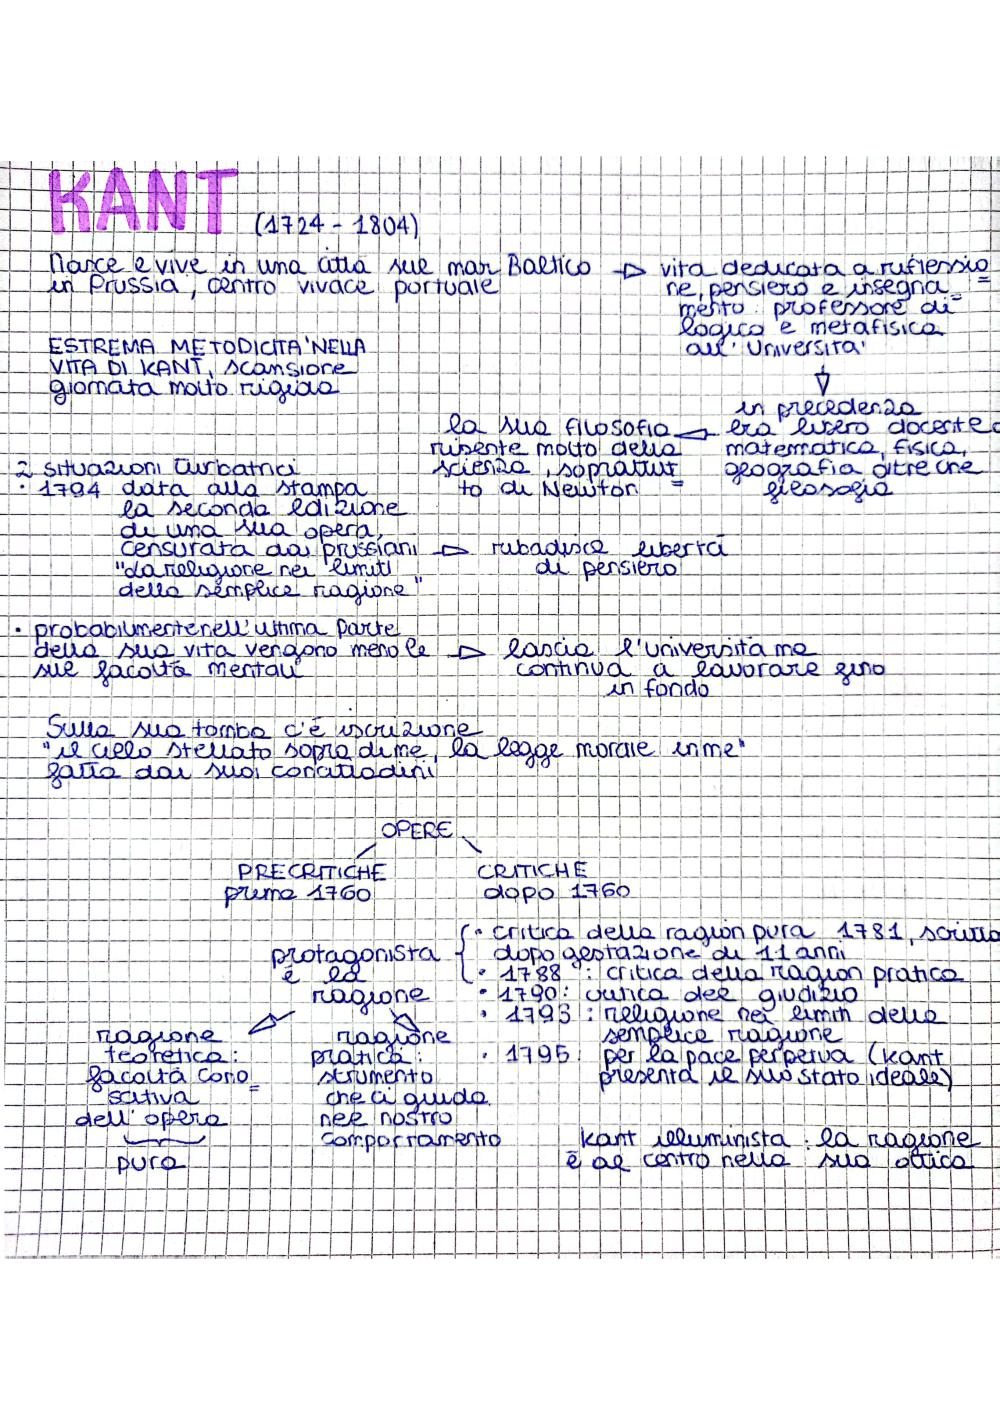 KANT (1724 - 1804)
Nasce e vive in una città sul mar Baltico
in Prussia, centro vivace portuale
vita dedicata a riflessio
ne, pensiero e insegna
mento: professore di
logica e metafisica
all'Università
ESTREMA METODICITA' NELLA
VITA DI KANT, scansione
giornata molto rigida
in precedenza
era libero docente
matematica, fisica,
geografia oltre che
filosofia
la sua filosofia
risente molto della
scienza, soprattut
to di Newton
2 situazioni turbatrici
• 1794 data alla stampa
la seconda edizione
di una sua opera,
censurata dai prussiani
"La religione nei limiti
della semplice ragione"
ribadisce libertà
di pensiero
• probabilmente nell'ultima parte
della sua vita vengono meno le
sue facoltà mentali
lascia l'università ma
continua a lavorare fino
in fondo
Sulla sua tomba c'è iscrizione
"il cielo stellato sopra di me, la legge morale in me"
fatta dai suoi concittadini
OPERE
PRECRITICHE
prima 1760
CRITICHE
dopo 1760
protagonista
è la
ragione
• critica della ragion pura 1781, scritta
dopo gestazione di 11 anni
• 1788: critica della ragion pratica
• 1790: critica del giudizio
• 1793: religione nei limiti della
semplice ragione
• 1795: per la pace perpetua (Kant
presenta il suo stato ideale)
ragione
teoretica:
facoltà cono
scitiva
dell'opera
pura
ragione
pratica:
strumento
che ci guida
nel nostro
comportamento
Kant illuminista: la ragione
è al centro nella sua ottica